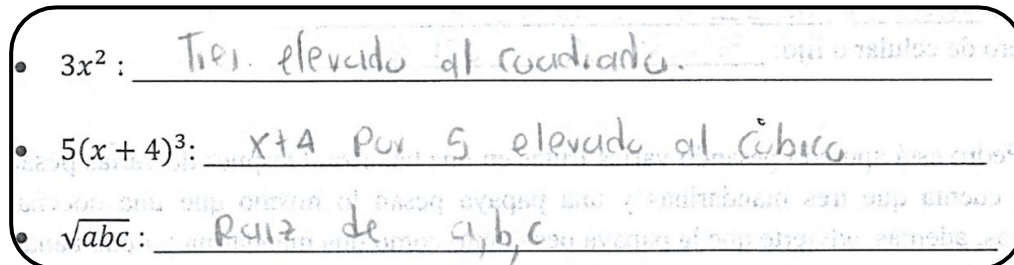 • 3x² : Tres elevado al cuadrado.
• 5(x + 4)³: x+4 Por 5 elevado al cúbico
• √abc : Raiz de a,b,c